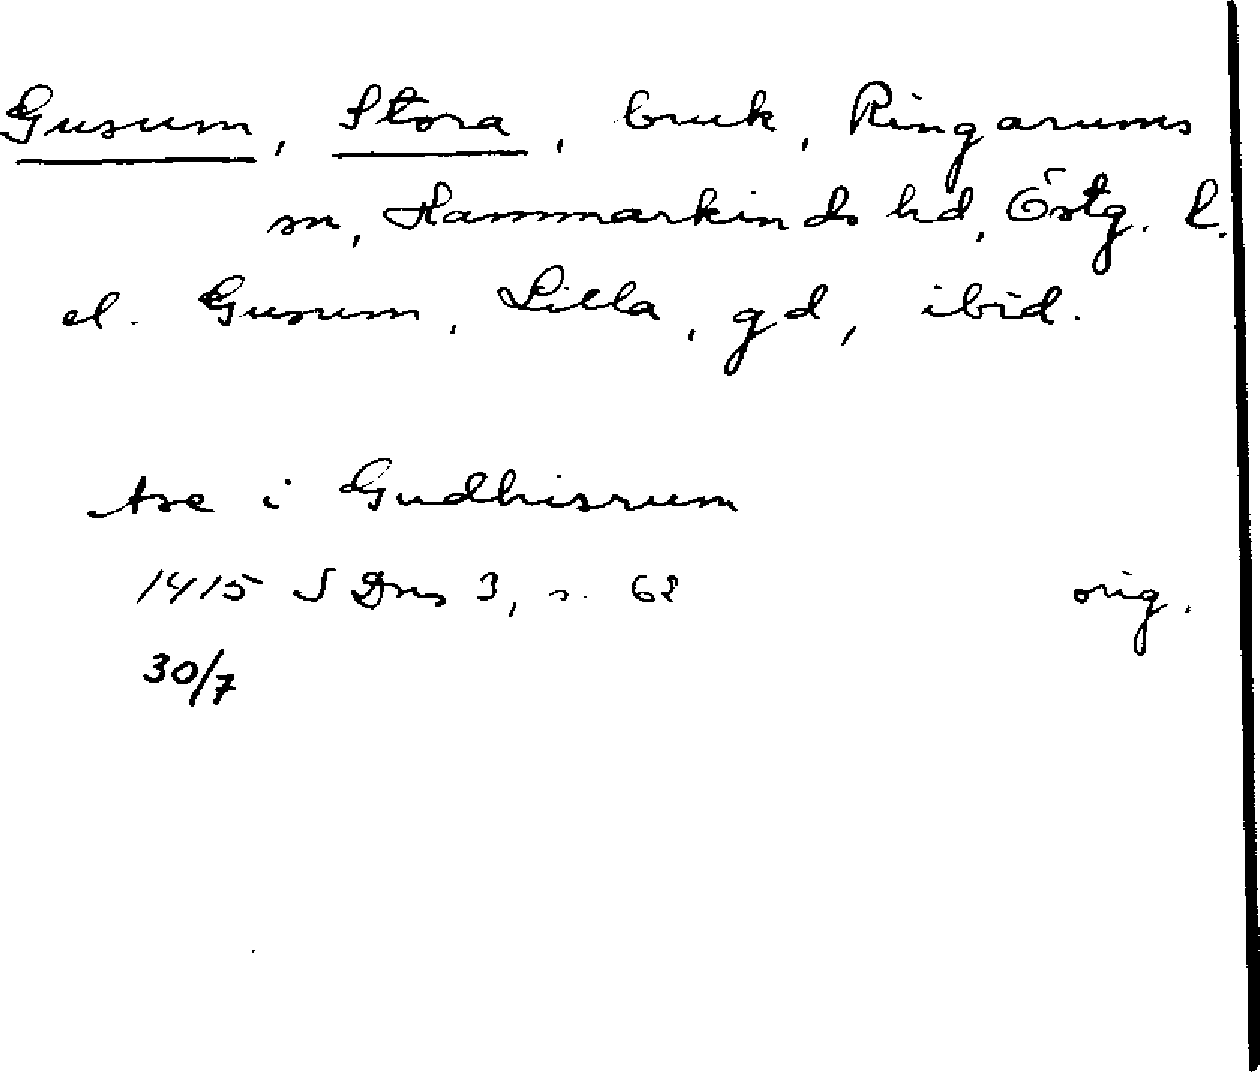 Gusum, Stora, bruk, Ringarums
sn, Hammarkinds hd, Östg. l.
el. Gusum, Lilla, gd, ibid.
Axe i Gudhisrum
1415 SDns 3, s. 62 orig.
30/7